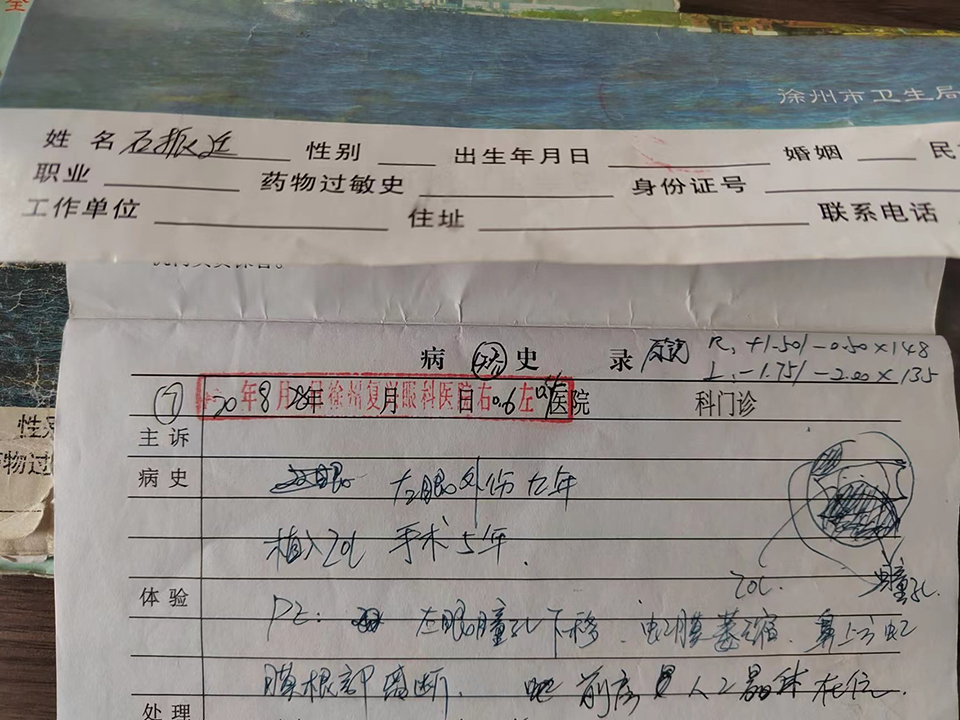 全
徐州市卫生局
姓 名 石振 性别 出生年月日 婚姻 民
职业 药物过敏史 身份证号
工作单位 住址 联系电话
病 历 史 录 R, +1.50/-0.50×148
L, -1.75/-2.00×135
⑦ 20年8月28日徐州复兴眼科医院右0.6左 医院 科门诊
年 月 日
主 诉
病 史 左眼外伤 年
植入IOL 手术5年.
IOL. 瞳孔.
体 验 PE: 左眼瞳孔下移. 虹膜萎缩. 鼻上方虹
膜根部离断. 前房 人工晶体在位.
处 理
性别
药物过